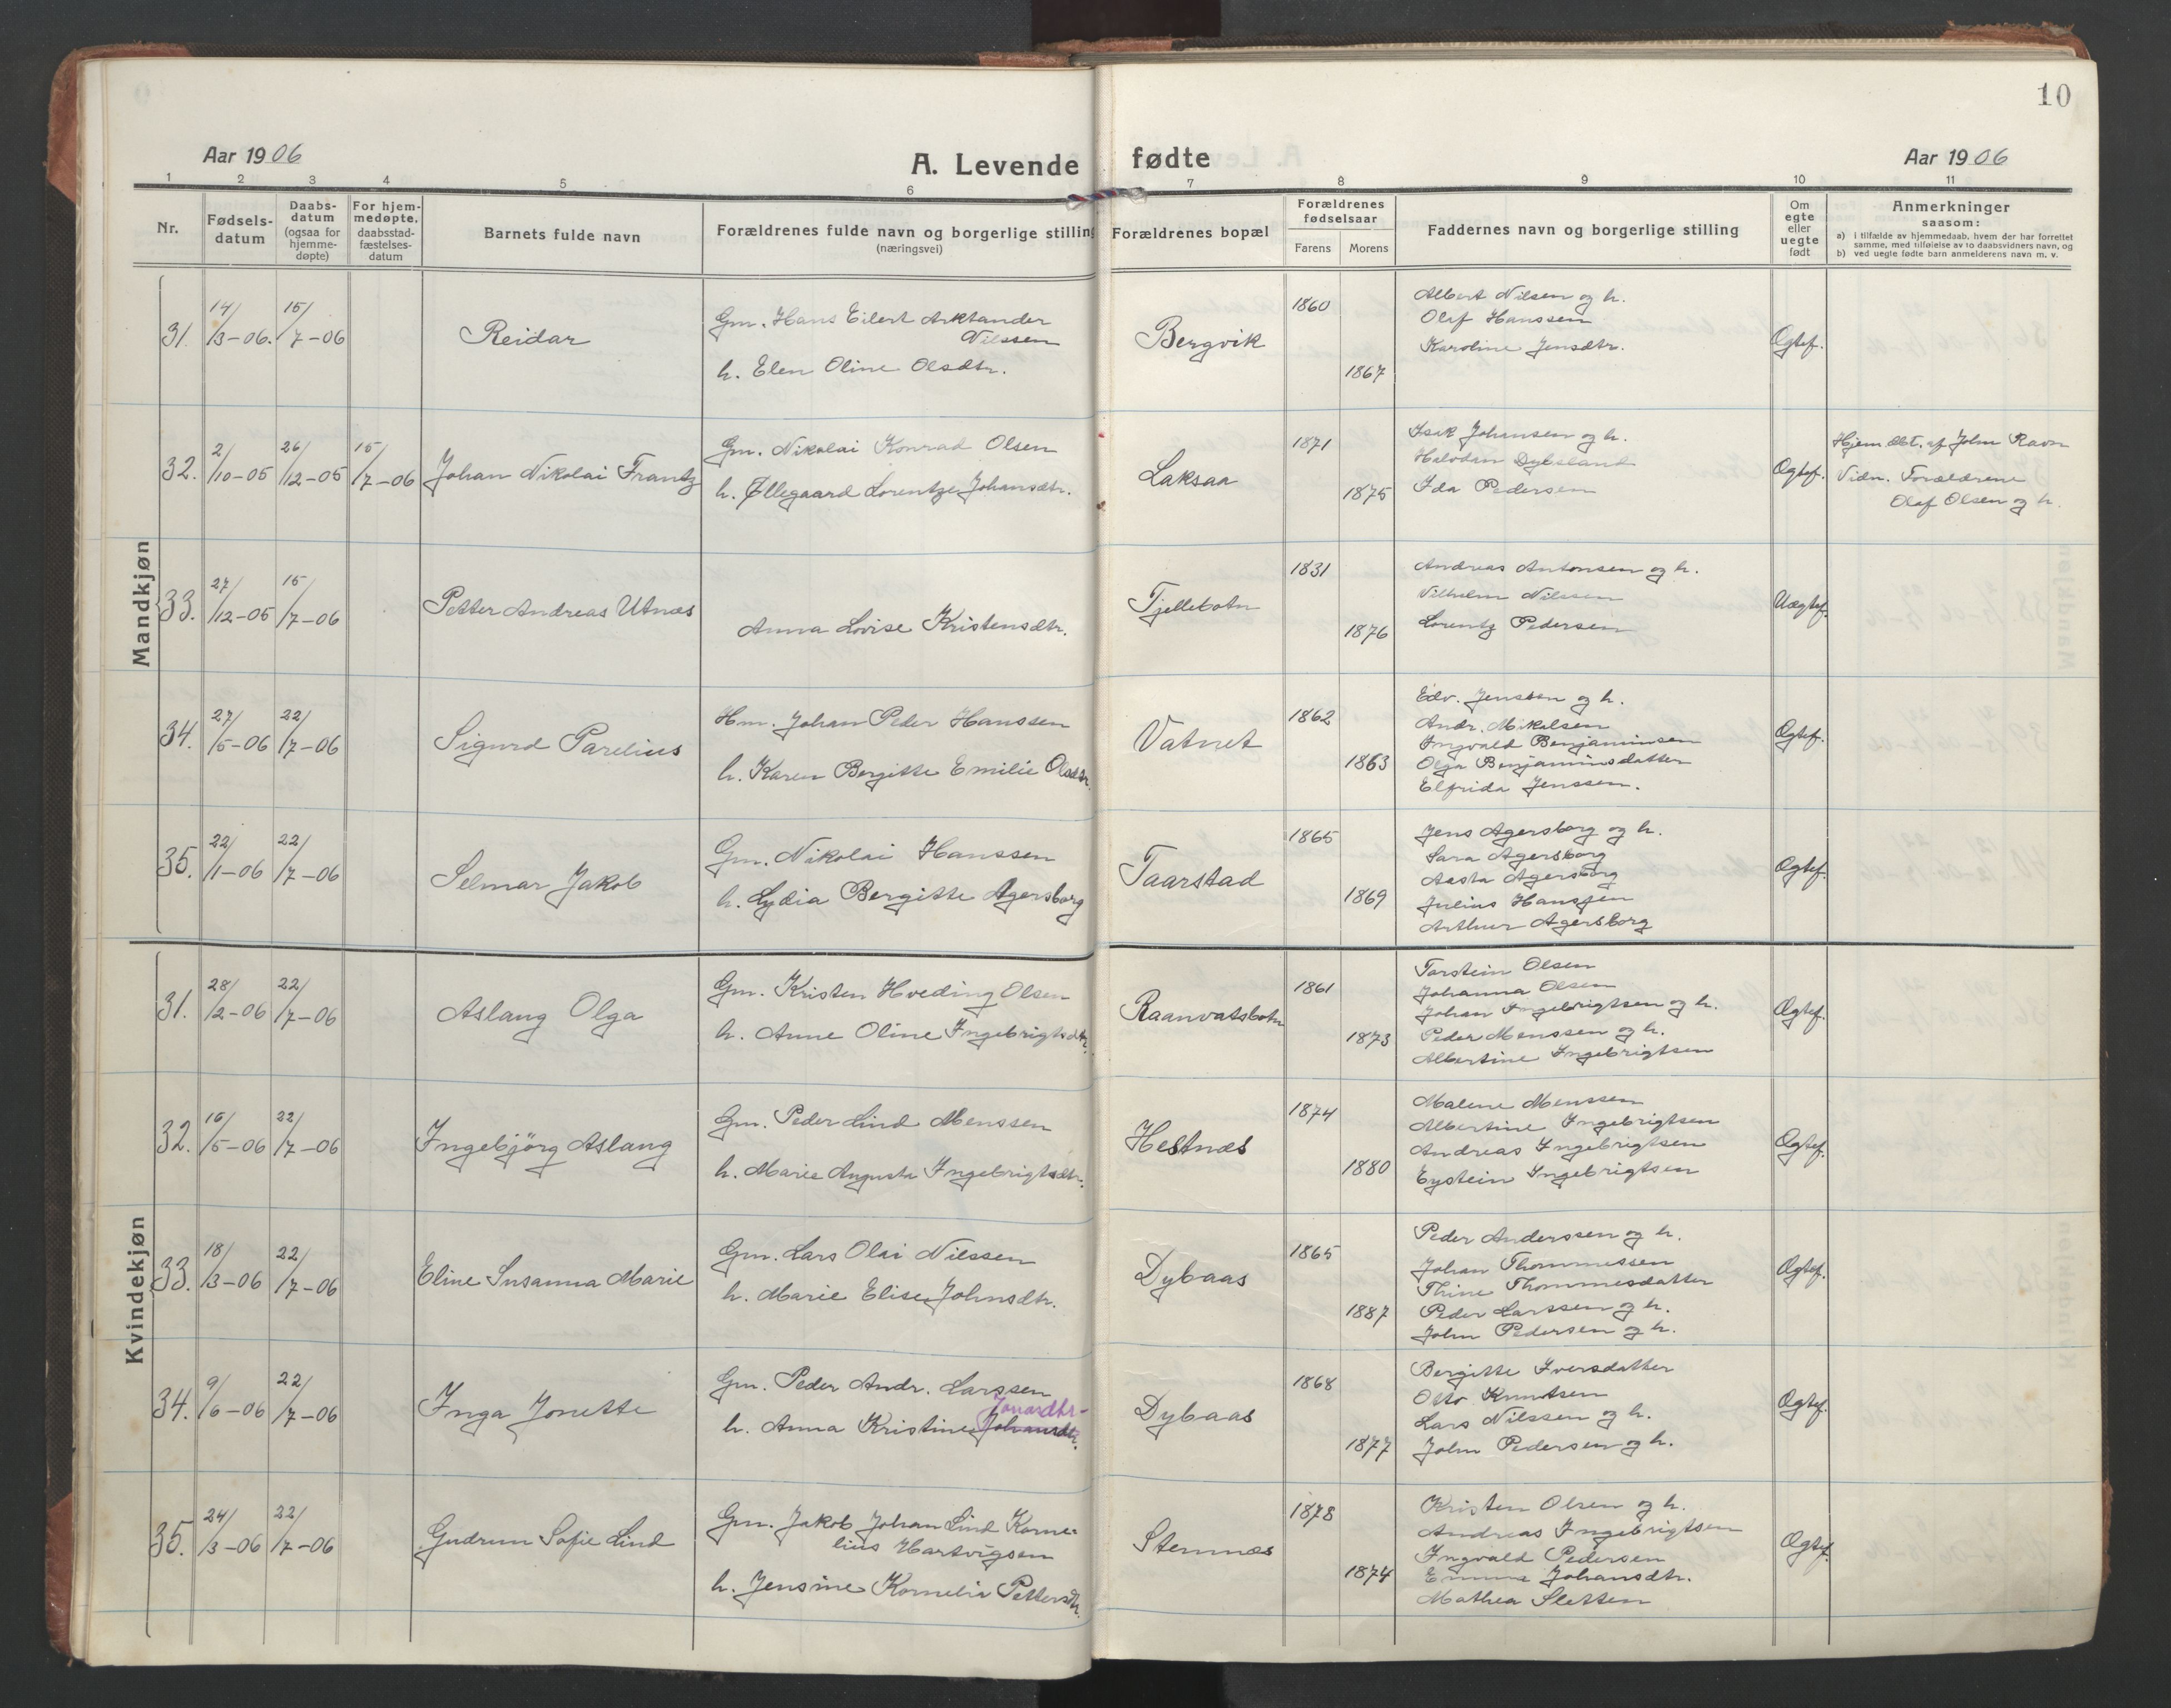 10
Aar 1906
A. Levende fødte
Aar 1906
1 2 3 4 5 6 7 8 9 10 11
Nr.
Fødsels-
datum
Daabs-
datum
(ogsaa for
hjemme-
døpte)
For hjem-
medøpte,
daabsstad-
fæstelses-
datum
Barnets fulde navn
Forældrenes fulde navn og borgerlige stilling
(næringsvei)
Forældrenes bopæl
Forældrenes
fødselsaar
Farens Morens
Faddernes navn og borgerlige stilling
Om
egte
eller
uegte
født
Anmerkninger
saasom:
a) i tilfælde av hjemmedaab, hvem der har forrettet
samme, med tilføielse av to daabsvidners navn, og
b) ved uegte fødte barn anmelderens navn m. v.
Mandkjøn
31.
14/3-06.
15/7-06
Reidar
Gm. Hans Eilert Arktander
Nilssen
h. Elen Oline Olsdtr.
Bergvik
1860
1867
Albert Nilsen og h.
Olaf Hanssen
Karoline Jensdtr.
Ogtef.
32.
2/10-05
26/12-05
15/7-06
Johan Nikolai Frantz
Gm. Nikolai Konrad Olsen
h. Øllegaard Lorentze Johansdtr.
Laksaa
1871
1875
Isak Johansen og h.
Halvdan Dybsland
Ida Pedersen
Ogtef.
Hjem.dbt. af John Ravn
Vidn. Forældrene
Olaf Olsen og h.
33.
27/12-05
15/7-06
Petter Andreas Utnæs
Anna Lovise Kristensdtr.
Tjellebotn
1831
1876
Andreas Antonsen og h.
Vilhelm Nilssen
Lorentz Pedersen
Uægtef.
34.
27/5-06
22/7-06
Sigurd Parelius
Hm. Johan Peder Hanssen
h. Karen Bergitte Emilie Olsdtr.
Vatnet
1862
1863
Edv. Jenssen og h.
Andr. Mikalsen
Ingvald Benjaminsen
Olga Benjaminsdatter
Elfrida Jenssen.
Ogtef.
35.
22/1-06
22/7-06
Selmar Jakob
Gm. Nikolai Hanssen
h. Lydia Bergitte Agersborg
Taarstad
1865
1869
Jens Agersborg og h.
Sara Agersborg
Aasta Agersborg
Julius Hanssen
Arthur Agersborg
Ogtef.
Kvindekjøn
31.
28/2-06
22/7-06
Aslaug Olga
Gm. Kristen Hveding Olsen
h. Anne Oline Ingebrigtsdtr.
Raanvatsbotn
1861
1873
Torstein Olsen
Johanna Olsen
Johan Ingebrigtsen og h.
Peder Menssen og h.
Albertine Ingebrigtsen
Ogtef.
32.
16/5-06
22/7-06
Ingebjörg Aslaug
Gm. Peder Lind Menssen
h. Marie Augusta Ingebrigtsdtr.
Hestnæs
1874
1880
Malene Menssen
Albertine Ingebrigtsen
Andreas Ingebrigtsen
Eystein Ingebrigtsen
Ogtef.
33.
18/3-06
22/7-06
Eline Susanna Marie
Gm. Lars Olai Nilssen
h. Marie Elise Johnsdtr.
Dybaas
1865
1887
Peder Anderssen og h.
Johan Thommessen
Thine Thommesdatter
Peder Larssen og h.
John Pedersen og h.
Ogtef.
34.
9/6-06
22/7-06
Inga Jonette
Gm. Peder Andr. Larssen
Jonasdtr-
h. Anna Kristine Johansdtr.
Dybaas
1868
1877
Bergitte Iversdatter
Otto Knudtsen
Lars Nilssen og h.
John Pedersen og h.
Ogtef.
35.
24/3-06
22/7-06
Gudrun Sofie Lind
Gm. Jakob Johan Lind Korne-
lius Hartvigsen
h. Jensine Kornelie Pettersdtr.
Stemnæs
1878
1874
Kristen Olsen og h.
Andreas Ingebrigtsen
Ingvald Pedersen
Emma Johansdtr.
Mathea Sletten
Ogtef.